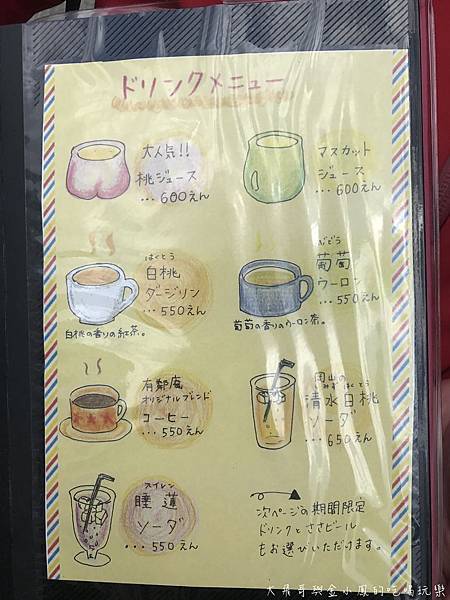 ドリンクメニュー
大人気!!
桃ジュース
...600えん
マスカット
ジュース
...600えん
はくとう
白桃
ダージリン
...550えん
白桃の香りの紅茶。
ぶどう
葡萄
ウーロン
...550えん
葡萄の香りのウーロン茶。
有鄰庵
オリジナルブレンド
コーヒー
...550えん
岡山の
しみずはくとう
清水白桃
ソーダ
...650えん
スイレン
睡蓮
ソーダ
...550えん
次ページの期間限定
ドリンクとささビール
もお選びいただけます。
大飛哥與金小鳳的吃喝玩樂